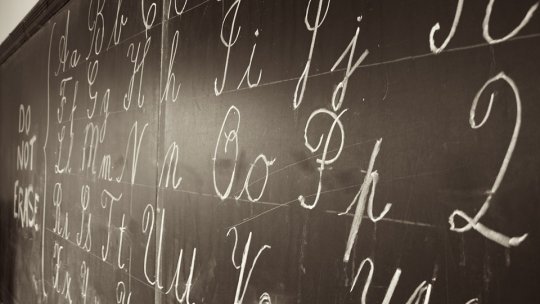 DO
NOT
ERASE
Aa Bb Cc
Ff Gg Hh Ii Jj
Ll Mm Nn Oo Pp Q
Rr Ss Tt Uu Vv
Xx